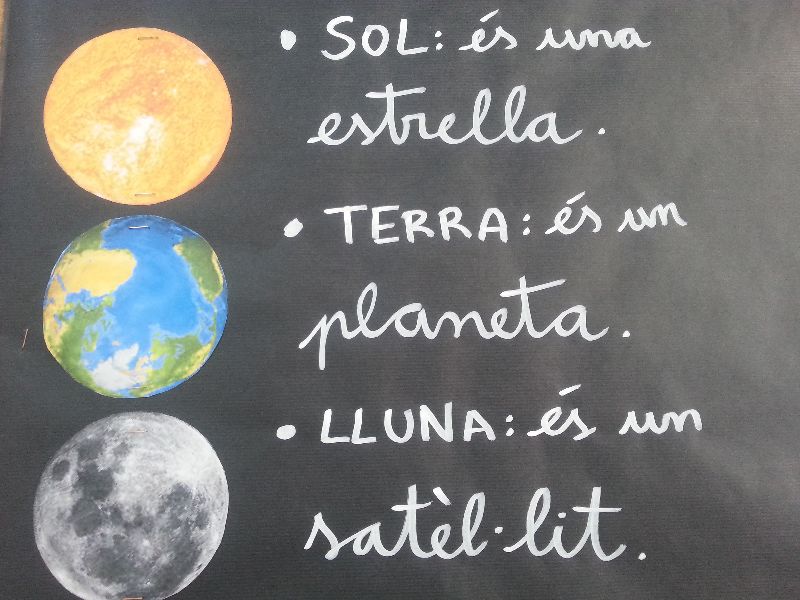 • SOL: és una
estrella.
• TERRA: és un
planeta.
• LLUNA: és un
satèl·lit.